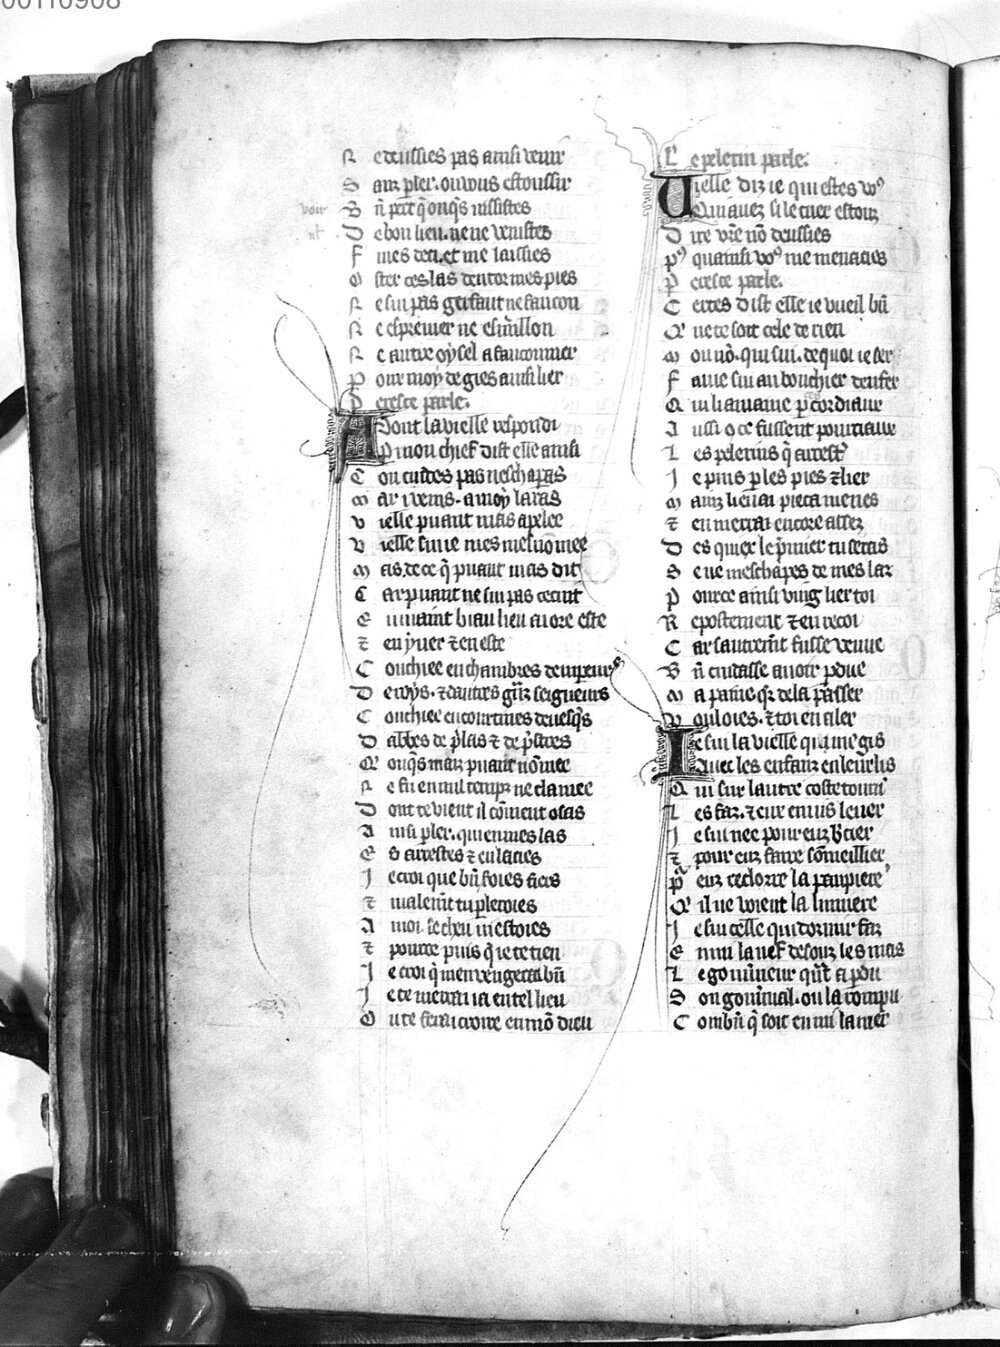 00110908
N e deussies pas ainsi venir
S anz pler. ou vous estoussir
B n̄ pert q̄ onq̄s nissistes
D e bon lieu. ne ne venistes
F uies deci. et me laissies
O ster ces las dentor mes pies
N e sui pas gerfaut ne faucon
N e esprevier ne esmillon
N e autre oysel a fauconnier
P our moy de gies ainsi lier
P eresce parle.
A Dont la vielle respondi
P mon chief dist elle ainsi
C on cuides pas neschaperas
M ar i venis. a moy laras
V ielle puant mas apelee
V ielle sui ie mes me luōmee
M ais. de ce q̄ puant mas dit
C ar puant ne sui pas ce cuit
E n maint biau lieu ai ore este
⁊ en yver ⁊ en este
C ouchiee en chambres dempeurs
D e roys. ⁊ dautres gūz seigneurs
C ouchiee en courtines devesq̄s
D abbes de p̄las ⁊ de p̄stres
O onq̄s maiz puant nōmee
N e fu en mil temps ne clamee
D ont te vient il cōment osas
A insi pler. qui en mes las
E s arrestes ⁊ enlacies
I e croi que bn̄ foies fiers
⁊ malemt̄ tu pleroies
A moi. se cheu ni estoies
⁊ pource puis q̄ ie te tien
I e croi q̄ men vengerai bn̄
I e te metrai ia en tel lieu
O u te ferai croire en mō dieu
L e pelerin parle.
V ielle diz ie qui estes voꝰ
Qui avez si le cuer estouz
D ire vr̄e nō deussies
pꝰ quainsi voꝰ me menacies
P eresce parle.
C ertes dist elle ie vueil bn̄
Q ne te soit cele de rien
M on nō. qui sui. de quoi ie ser
F ame sui au bouchier denfer
Q ui li amaine p cordiaux
A ussi 9 ce fussent pourciaux
L es pelerins q̄ arrest
I e prins p les pies ⁊ lier
M ainz lien ai pieca menes
⁊ en merrai encore assez
D es quiex le p̄mier tu seras
S e ne meschapes de mes laz
P ource ainsi ving lier toi
R epostement ⁊ en recoi
C ar sautremt̄ fusse venue
B n̄ cuidasse avoir pdue
M a paine qr̄ dela passer
V ouloies. ⁊ toi en aler
I e sui la vielle qui me gis
Avec les enfanz en leur lis
Q ui sur lautre coste tourn̄
L es faz. ⁊ eux envis lever
I e sui nee pour euz bercier
⁊ pour euz faire sōmeillier
P euz reclorre la paupiere
Q il ne voient la lumiere
I e sui celle qui dormir faz
E nmi la nef desouz les mas
L e gouvneur qūt a pdu
S on gouvnal. ou la rompu
C ombn̄ q̄ soit en mi la mer